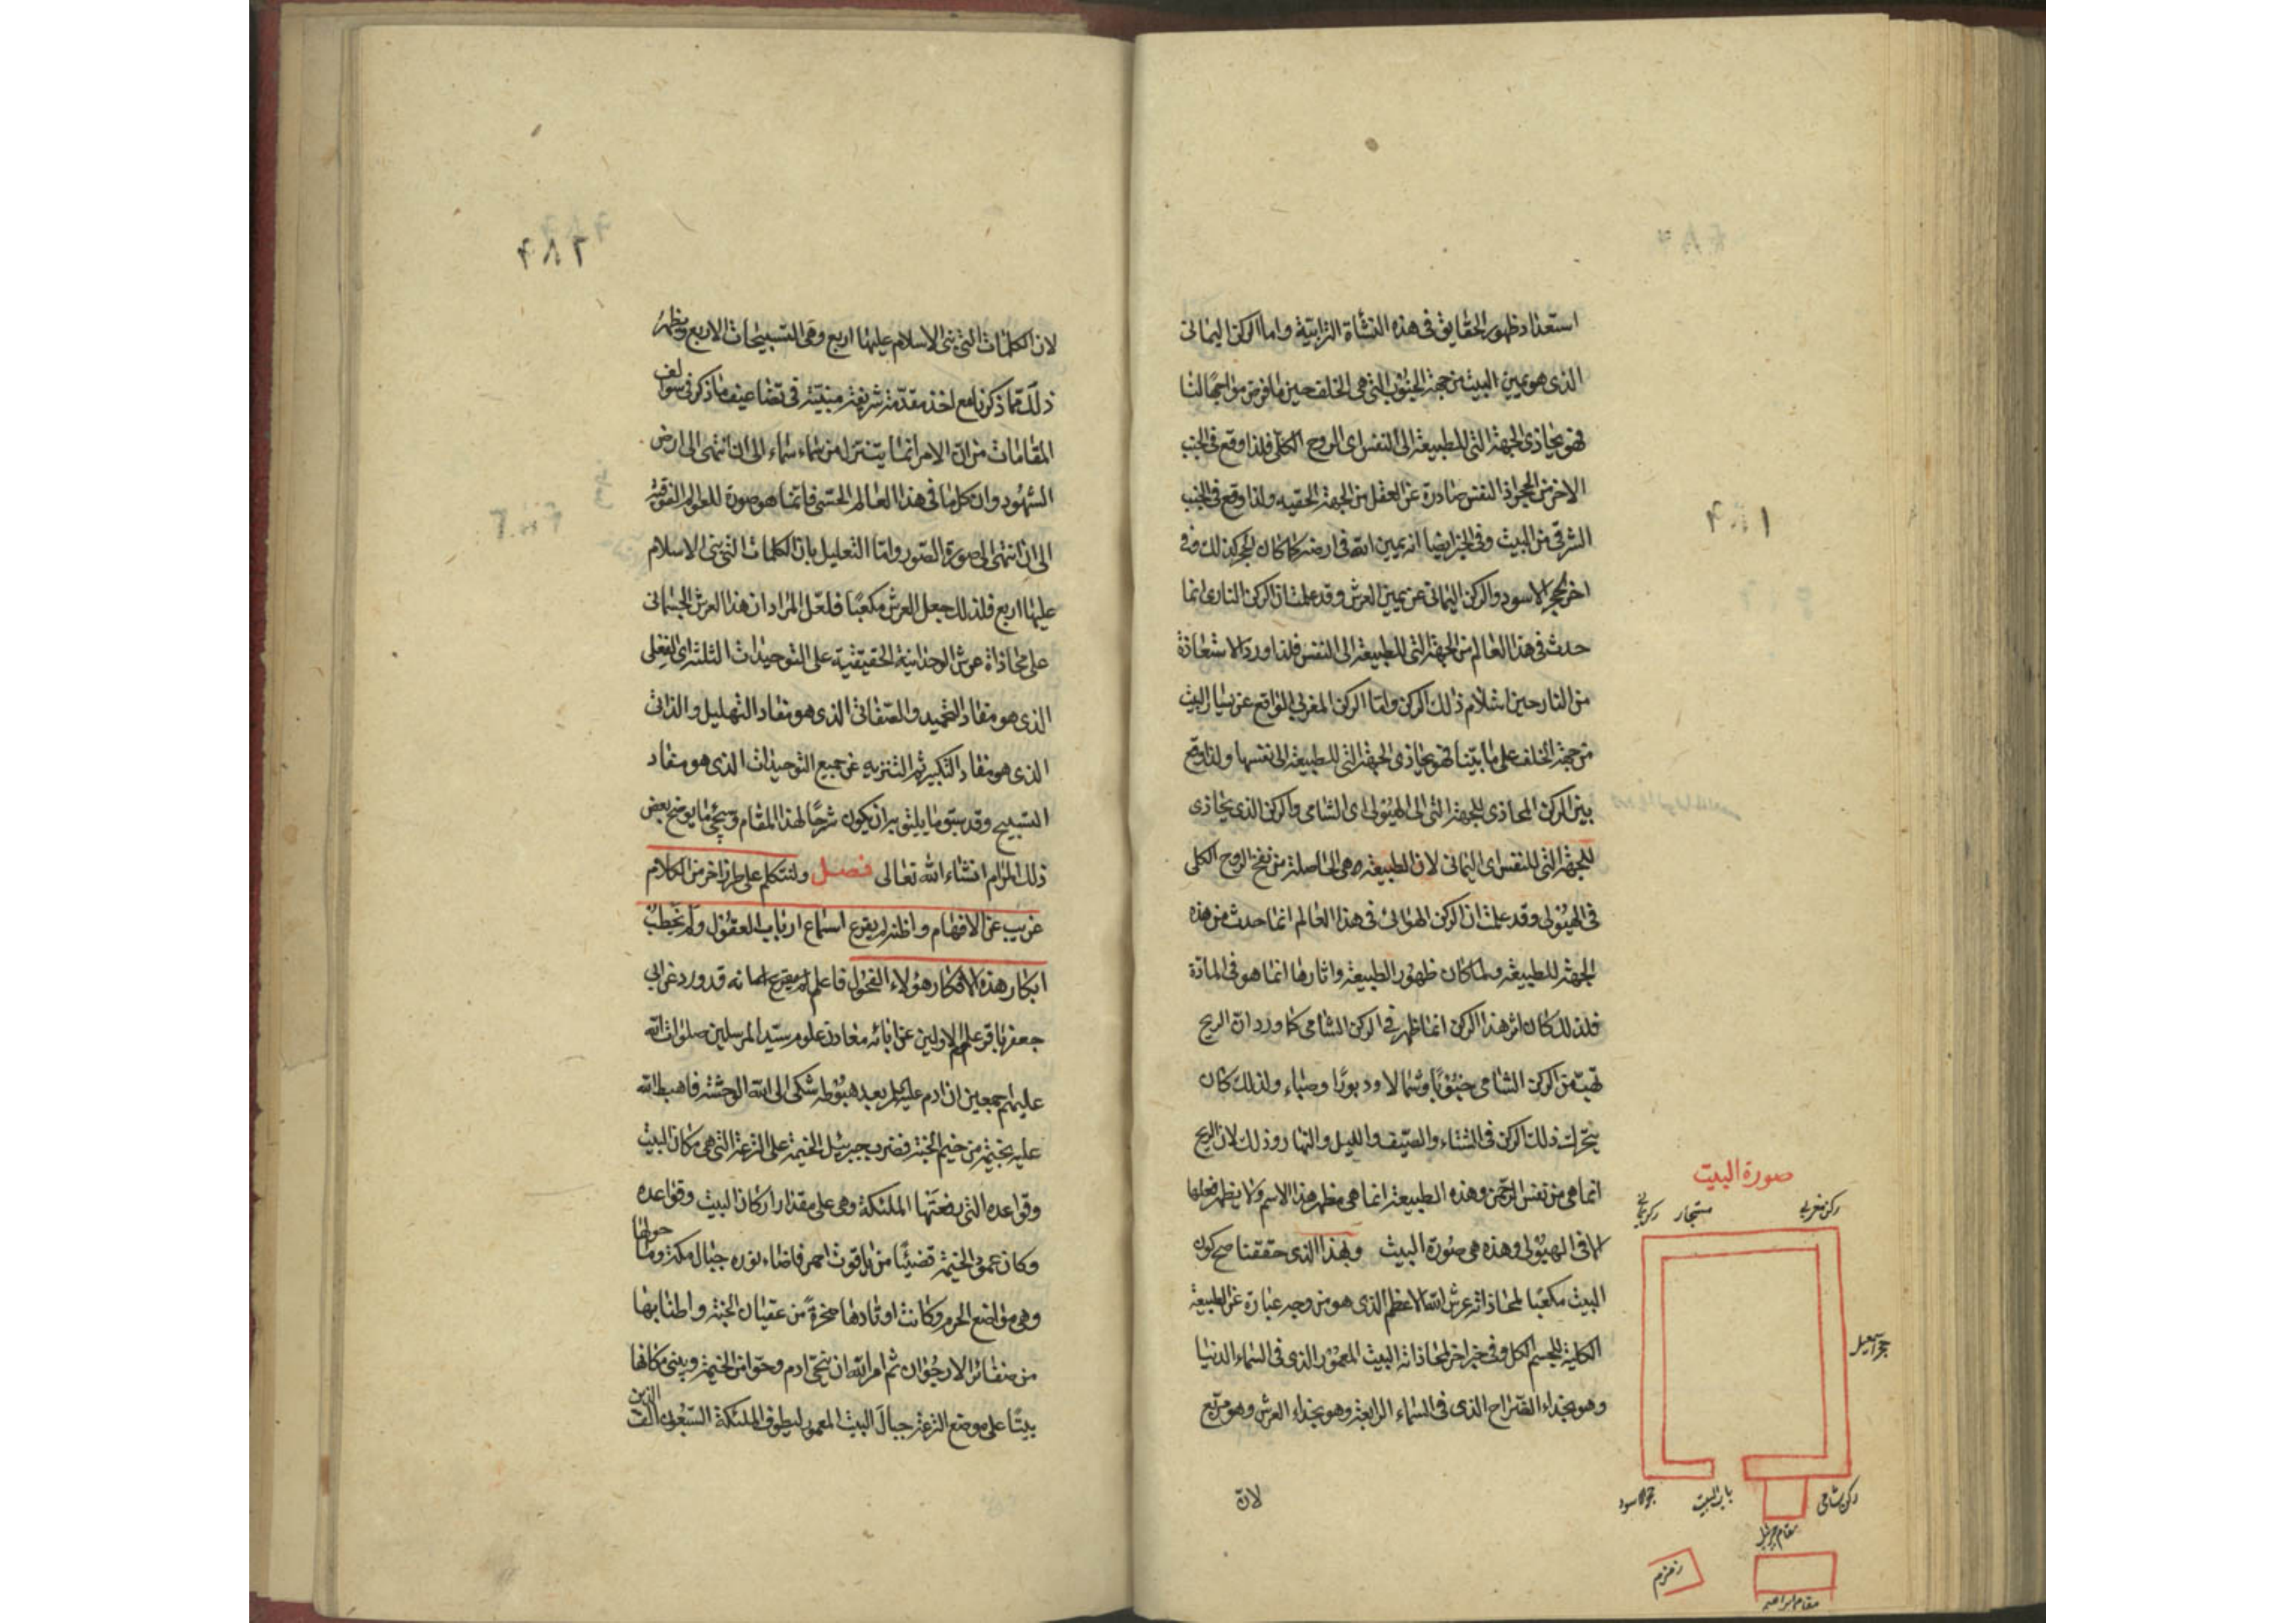 استعداد ظهور الحقایق فی هذه النشأة الترابیة واما الرکن الیمانی
الذی هو یمین البیت من جهة الجنوب التی هی الخلف حین ما فرض مواجهًا لنا
فهو یحاذی الجهة التی للطبیعة الی النفس ای الروح الکلی فلذا وقع فی الجنب
الاخر من الحجر اذ النفس صادرة عن العقل من الجهة الحقیه ولذا وقع فی الجنب
الشرقی من البیت وفی الخبر ایضا انه یمین الله فی ارضه کما کان الحجر کذلک وفی
اخر الحجر الاسود والرکن الیمانی عن یمین العرش وقد علمت ان الرکن الناری انما
حدث فی هذا العالم من الجهة التی للطبیعة الی النفس فلذا ورد الاستعاذة
من النار حین استلام ذلک الرکن واما الرکن المغربی الواقع عن یسار البیت
من جهة الخلف علی ما بیّنا فهو یحاذی الجهة التی للطبیعة الی نفسها ولذا وقع
بین الرکن المحاذی للجهة التی الی الهیولی ای الشامی والرکن الذی یحاذی
للجهة التی للنفس ای الیمانی لان الطبیعة هی الحاصلة من نفخ الروح الکلی
فی الهیولی وقد علمت ان الرکن الهوائی فی هذا العالم انما حدث من هذه
الجهة للطبیعة ولما کان ظهور الطبیعة واثارها انما هو فی المادة
فلذلک کان اثر هذا الرکن انما ظهر فی الرکن الشامی کما ورد ان الریح
تهب من الرکن الشامی جنوبًا وشمالا ودبورًا وصباء ولذلک کان
یتحرک ذلک الرکن فی الشتاء والصیف واللیل والنهار وذلک لان الریح
انما هی من نفس الرحمن وهذه الطبیعة انما هی مظهر هذا الاسم ولا یظهر فعلها
الا فی الهیولی وهذه هی صورة البیت وبهذا الذی حققنا صح کون
البیت مکعبًا لمحاذاته عرش الله الاعظم الذی هو من وجه عبارة عن الطبیعة
الکلیة للجسم الکل وفی خبر اخر لمحاذاته البیت المعمور الذی فی السماء الدنیا
وهو بحذاء الضراح الذی فی السماء الرابعة وهو بحذاء العرش وهو مربع
لان
صورة البیت
رکن مغربی
مستجار
حجر اسمعیل
رکن شامی
باب البیت
حجر الاسود
مقام جبرئیل
زمزم
مقام ابراهیم
لان الکلمات التی بنی الاسلام علیها اربع وهی التسبیحات الاربع ویظهر
ذلک مما ذکرنا مع اخذ مقدمة شریفة مبنیة فی تضاعیف ما ذکر فی سوالف
المقامات من ان الامر انما یتنزل من سماء سماء الی ان انتهی الی ارض
الشهود وان کل ما فی هذا العالم الحسی فانما هو صورة للعوالم الفوقیة
الی ان انتهی الی صورة الصور واما التعلیل بان الکلمات التی بنی الاسلام
علیها اربع فلذلک جعل العرش مکعبًا فلعل المراد ان هذا العرش الجسمانی
علی محاذاة عرش الوحدانیة الحقیقیة علی التوحیدات الثلثة ای الفعلی
الذی هو مفاد التحمید والصفاتی الذی هو مفاد التهلیل والذاتی
الذی هو مفاد التکبیر ثم التنزیه عن جمیع التوحیدات الذی هو مفاد
التسبیح وقد سبق ما یلیق بان یکون شرحًا لهذا المقام وسیجئ ما یوضح بعض
ذلک المرام انشاء الله تعالی فصل ولنتکلم علی طرز اخر من الکلام
غریب عن الافهام واظنه لم یقرع اسماع ارباب العقول ولم یخطب
ابکار هذه الافکار هؤلاء الفحول فاعلم انه قد ورد عن ابی
جعفر باقر علم الاولین عن ابائه معادن علوم سید المرسلین صلوات الله
علیهم اجمعین ان ادم علیه السلم بعد هبوطه شکی الی الله الوحشة فاهبط الله
علیه بخیمة من خیم الجنة فضرب جبرئیل الخیمة علی الترعة التی هی مکان البیت
وقواعده التی رفعتها الملئکة وهی علی مقدار ارکان البیت وقواعده
وکان عمود الخیمة قضیبًا من یاقوت احمر فاضاء نوره جبال مکة وما حولها
وهی مواضع الحرم وکانت اوتادها صخرةً من عقیان الجنة واطنابها
من ضفائر الارجوان ثم امر الله ان ینحی ادم وحوا من الخیمة ویبنی مکانها
بیتًا علی موضع الترعة حیال البیت المعمور لیطوف الملئکة السبعون الف الذین